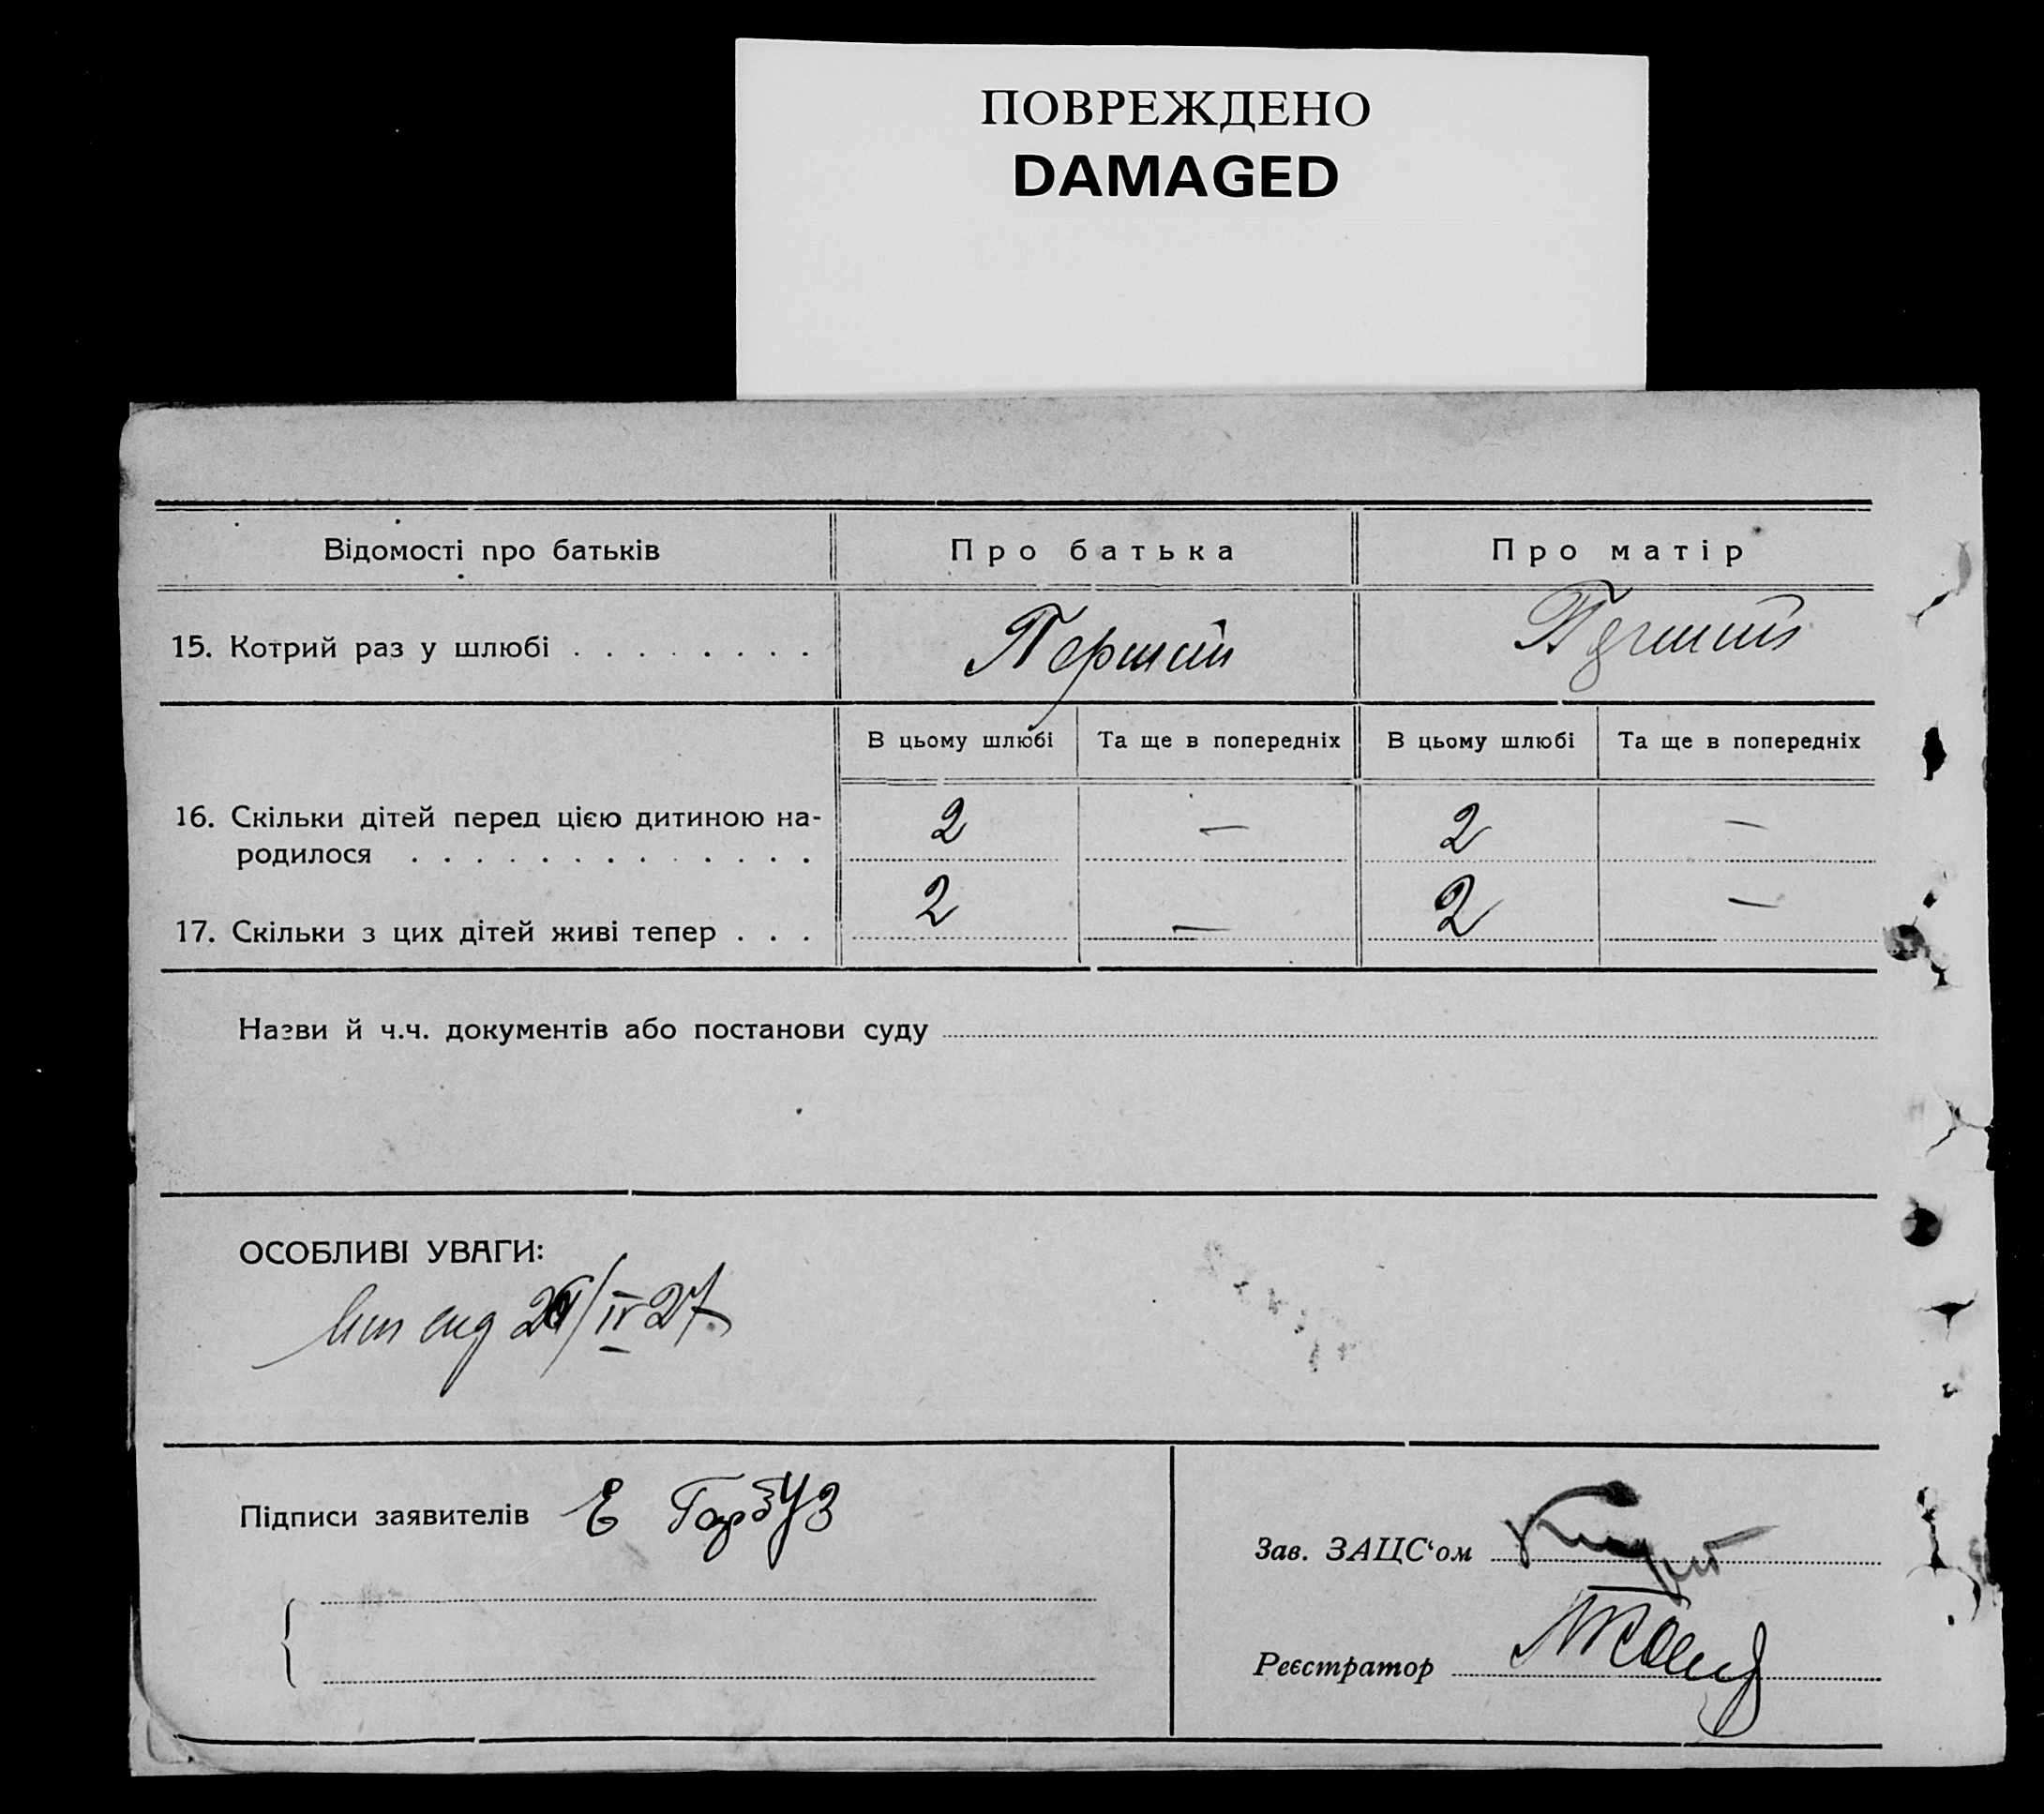 ПОВРЕЖДЕНО
DAMAGED
Відомості про батьків
Про батька
Про матір
15. Котрий раз у шлюбі . . . . . . . .
Перший
Перший
В цьому шлюбі
Та ще в попередніх
В цьому шлюбі
Та ще в попередніх
16. Скільки дітей перед цією дитиною на-
родилося . . . . . . . . . . . . .
2
—
2
—
17. Скільки з цих дітей живі тепер . . .
2
—
2
—
Назви й ч.ч. документів або постанови суду
ОСОБЛИВІ УВАГИ:
IV 27
Підписи заявителів
Е Гарбуз
Зав. ЗАЦС‘ом
Реєстратор